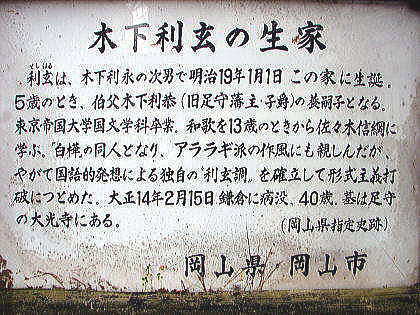 木下利玄の生家
としはる
利玄は、木下利永の次男で明治19年1月1日 この家に生誕。
5歳のとき、伯父木下利恭(旧足守藩主・子爵)の養嗣子となる。
東京帝国大学国文学科卒業。和歌を13歳のときから佐々木信綱に
学ぶ。"白樺"の同人となり、アララギ派の作風にも親しんだが、
やがて国語的発想による独自の"利玄調"を確立して形式主義打
破につとめた。大正14年2月15日鎌倉に病没、40歳。墓は足守
の大光寺にある。
(岡山県指定史跡)
岡山県・岡山市